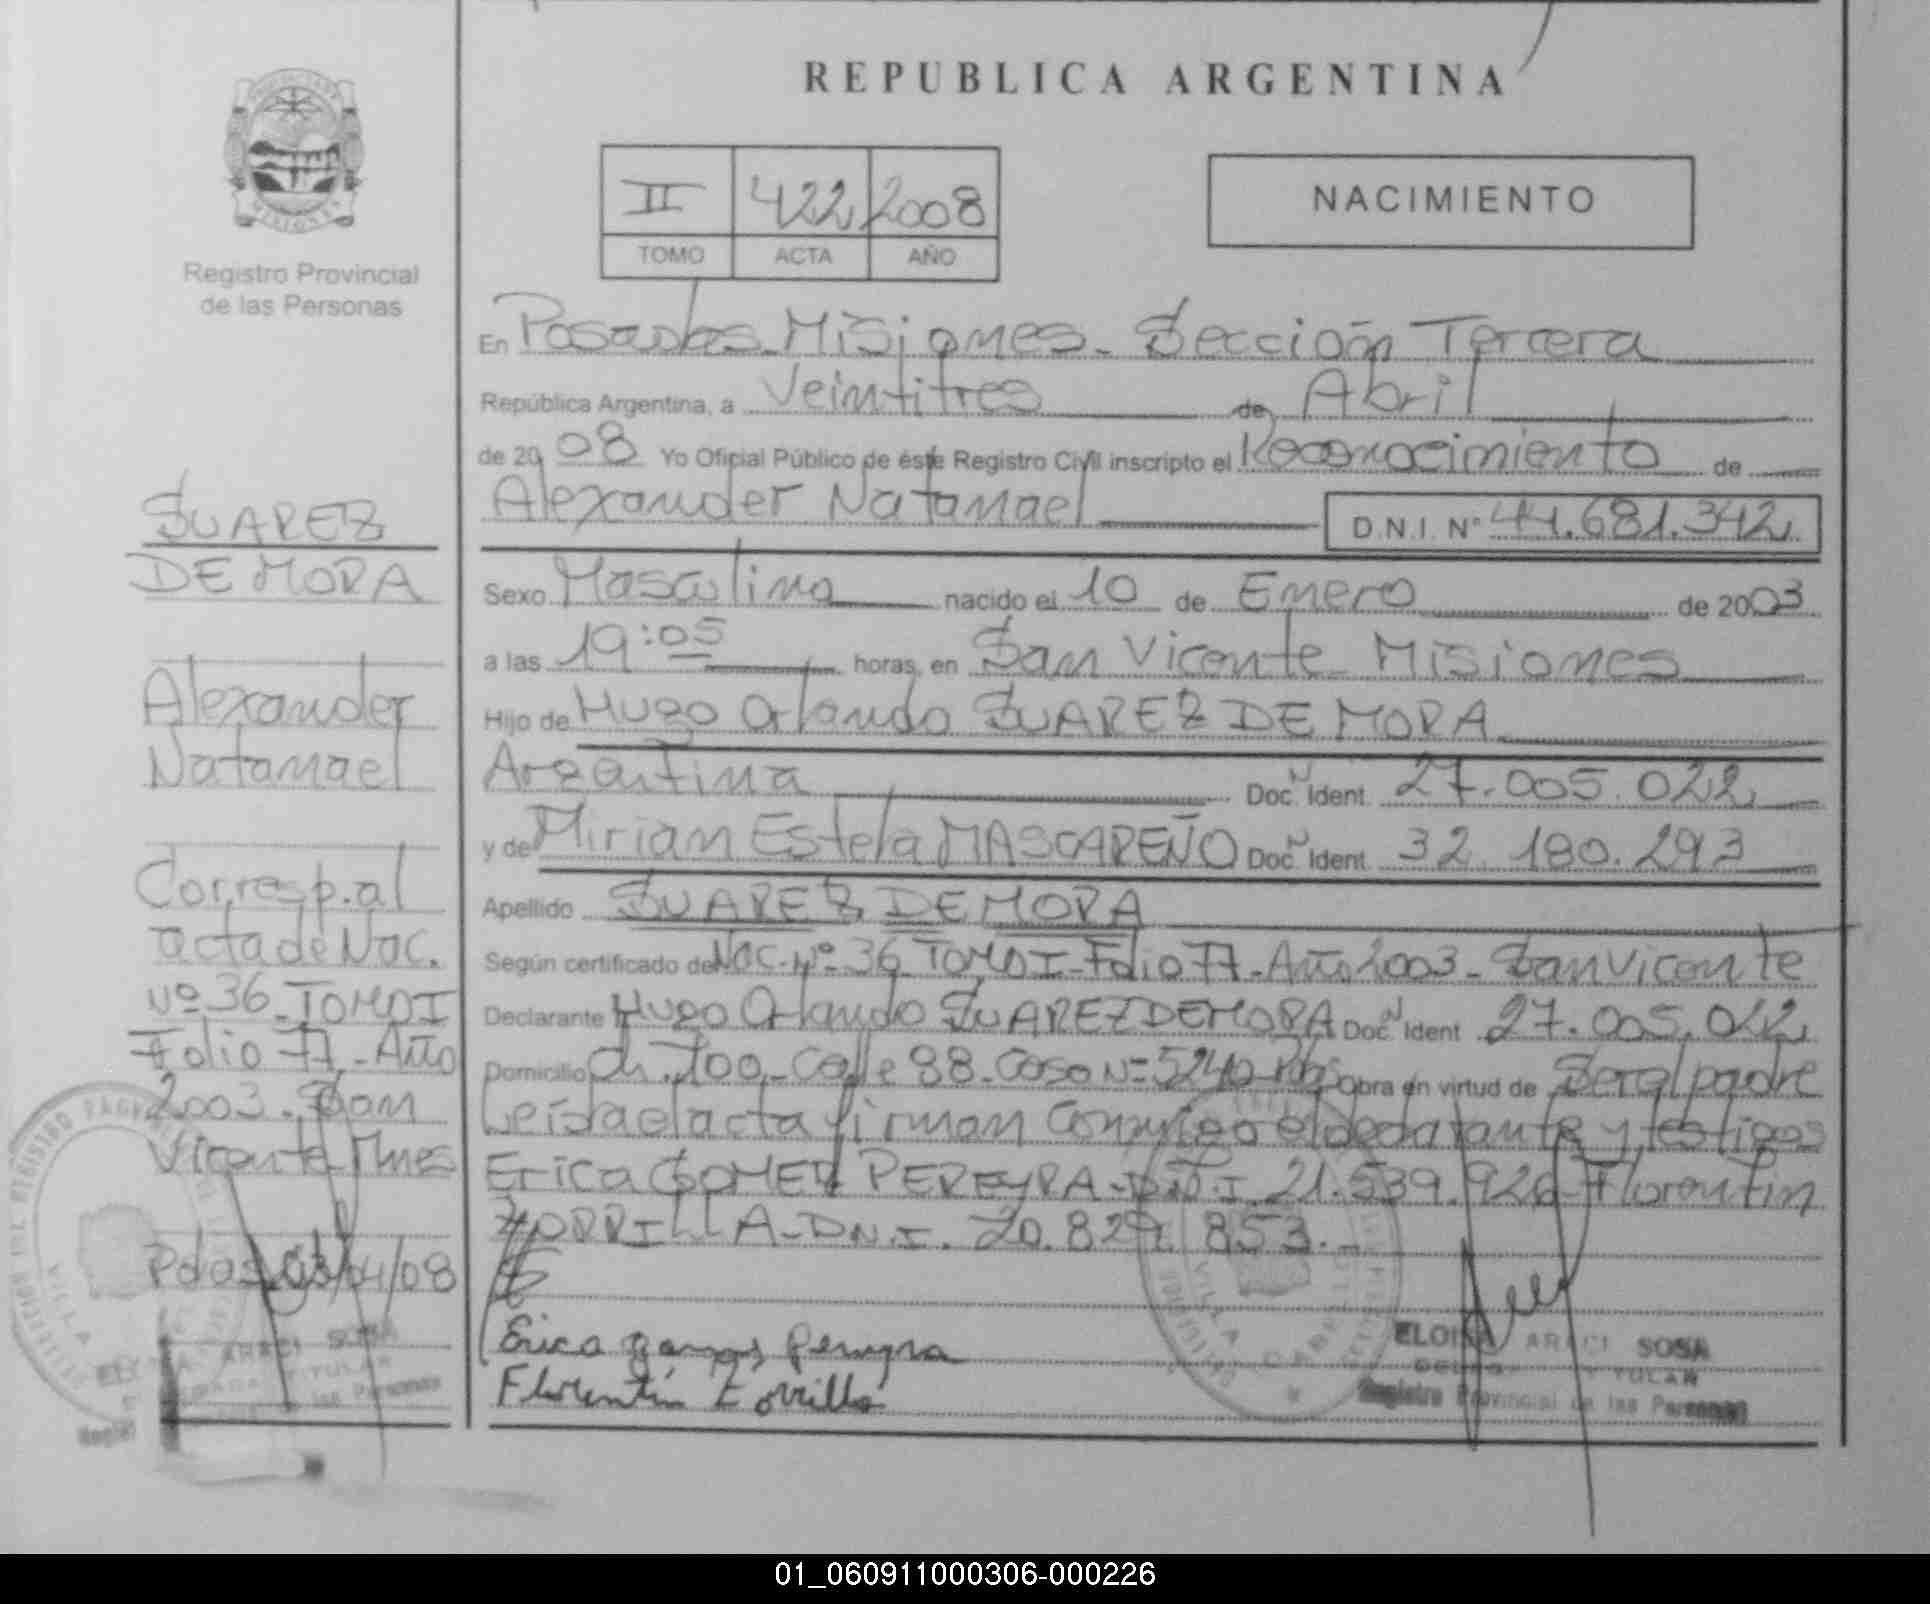 REPUBLICA ARGENTINA
II 422 2008
TOMO ACTA AÑO
NACIMIENTO
Registro Provincial
de las Personas
En Posadas Misiones - Sección Tercera
República Argentina, a Veintitres de Abril
de 2008 Yo Oficial Público de éste Registro Civil inscripto el Reconocimiento de
Alexander Natanael D.N.I. Nº 44.681.342
Sexo Masculino nacido el 10 de Enero de 2003
a las 19:05 horas, en San Vicente Misiones
Hijo de Hugo Orlando SUAREZ DE MORA
Argentina Doc. N Ident. 27.005.022
y de Mirian Estela MASCAREÑO Doc. N Ident. 32.180.293
Apellido SUAREZ DE MORA
Según certificado de Nac. Nº 36 TOMO I - Folio 77 - Año 2003 - San Vicente
Declarante Hugo Orlando SUAREZ DE MORA Doc. N Ident. 27.005.022
Domicilio Ch. 100 - Calle 98 - Casa Nº 5240 - Obra en virtud de Ser el padre
Leída el acta firman conmigo el declarante y testigos
Erica GOMEZ PEREYRA - D.N.I. 21.539.926 - Florentin
ZORRILLA - D.N.I. 20.829.853. -
Erica Gomez Pereyra
Florentin Zorrilla
ELOISA ARACI SOSA
Registro Provincial de las Personas
VILLA CABELLO
SUAREZ
DE MORA
Alexander
Natanael
Corresp. al
acta de Nac.
Nº 36 - TOMO I
Folio 77 - Año
2003. San
Vicente Mnes
Pdas /04/08
ARACI SOSA
las Personas
VILLA
01_060911000306-000226